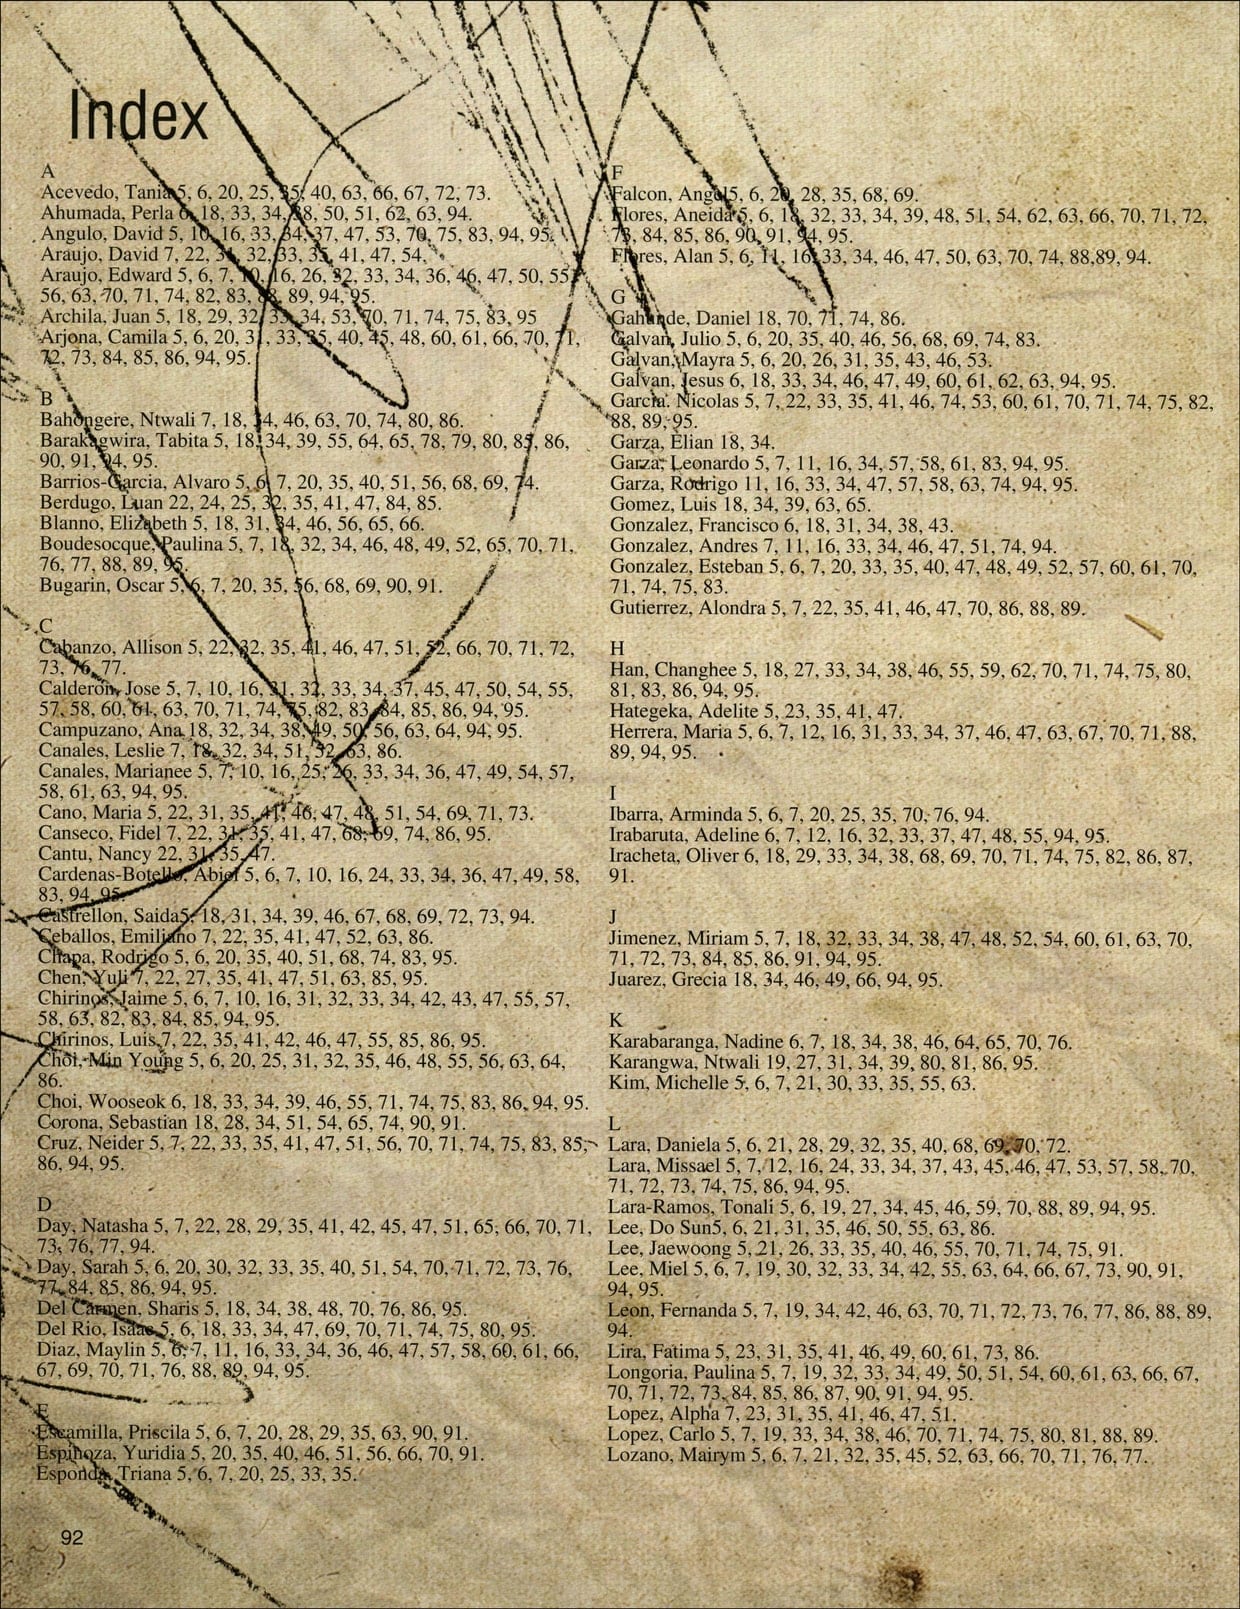 Index
A
Acevedo, Tania 5, 6, 20, 25, 35, 40, 63, 66, 67, 72, 73.
Ahumada, Perla 6, 18, 33, 34, 38, 50, 51, 62, 63, 94.
Angulo, David 5, 10, 16, 33, 34, 37, 47, 53, 70, 75, 83, 94, 95.
Araujo, David 7, 22, 31, 32, 33, 35, 41, 47, 54.
Araujo, Edward 5, 6, 7, 10, 16, 26, 32, 33, 34, 36, 46, 47, 50, 55,
56, 63, 70, 71, 74, 82, 83, 88, 89, 94, 95.
Archila, Juan 5, 18, 29, 32, 33, 34, 53, 70, 71, 74, 75, 83, 95
Arjona, Camila 5, 6, 20, 31, 33, 35, 40, 45, 48, 60, 61, 66, 70, 71,
72, 73, 84, 85, 86, 94, 95.
B
Bahongere, Ntwali 7, 18, 34, 46, 63, 70, 74, 80, 86.
Barakagwira, Tabita 5, 18, 34, 39, 55, 64, 65, 78, 79, 80, 85, 86,
90, 91, 94, 95.
Barrios-Garcia, Alvaro 5, 6, 7, 20, 35, 40, 51, 56, 68, 69, 74.
Berdugo, Luan 22, 24, 25, 32, 35, 41, 47, 84, 85.
Blanno, Elizabeth 5, 18, 31, 34, 46, 56, 65, 66.
Boudesocque, Paulina 5, 7, 18, 32, 34, 46, 48, 49, 52, 65, 70, 71,
76, 77, 88, 89, 95.
Bugarin, Oscar 5, 6, 7, 20, 35, 56, 68, 69, 90, 91.
C
Cabanzo, Allison 5, 22, 32, 35, 41, 46, 47, 51, 52, 66, 70, 71, 72,
73, 76, 77.
Calderon, Jose 5, 7, 10, 16, 31, 32, 33, 34, 37, 45, 47, 50, 54, 55,
57, 58, 60, 61, 63, 70, 71, 74, 75, 82, 83, 84, 85, 86, 94, 95.
Campuzano, Ana 18, 32, 34, 38, 49, 50, 56, 63, 64, 94, 95.
Canales, Leslie 7, 18, 32, 34, 51, 52, 63, 86.
Canales, Marianee 5, 7, 10, 16, 25, 26, 33, 34, 36, 47, 49, 54, 57,
58, 61, 63, 94, 95.
Cano, Maria 5, 22, 31, 35, 41, 46, 47, 48, 51, 54, 69, 71, 73.
Canseco, Fidel 7, 22, 31, 35, 41, 47, 68, 69, 74, 86, 95.
Cantu, Nancy 22, 31, 35, 47.
Cardenas-Botello, Abiel 5, 6, 7, 10, 16, 24, 33, 34, 36, 47, 49, 58,
83, 94, 95.
Castrellon, Saida5, 18, 31, 34, 39, 46, 67, 68, 69, 72, 73, 94.
Ceballos, Emiliano 7, 22, 35, 41, 47, 52, 63, 86.
Chapa, Rodrigo 5, 6, 20, 35, 40, 51, 68, 74, 83, 95.
Chen, Yuli 7, 22, 27, 35, 41, 47, 51, 63, 85, 95.
Chirinos, Jaime 5, 6, 7, 10, 16, 31, 32, 33, 34, 42, 43, 47, 55, 57,
58, 63, 82, 83, 84, 85, 94, 95.
Chirinos, Luis 7, 22, 35, 41, 42, 46, 47, 55, 85, 86, 95.
Choi, Min Young 5, 6, 20, 25, 31, 32, 35, 46, 48, 55, 56, 63, 64,
86.
Choi, Wooseok 6, 18, 33, 34, 39, 46, 55, 71, 74, 75, 83, 86, 94, 95.
Corona, Sebastian 18, 28, 34, 51, 54, 65, 74, 90, 91.
Cruz, Neider 5, 7, 22, 33, 35, 41, 47, 51, 56, 70, 71, 74, 75, 83, 85,
86, 94, 95.
D
Day, Natasha 5, 7, 22, 28, 29, 35, 41, 42, 45, 47, 51, 65, 66, 70, 71,
73, 76, 77, 94.
Day, Sarah 5, 6, 20, 30, 32, 33, 35, 40, 51, 54, 70, 71, 72, 73, 76,
77, 84, 85, 86, 94, 95.
Del Carmen, Sharis 5, 18, 34, 38, 48, 70, 76, 86, 95.
Del Rio, Isaac 5, 6, 18, 33, 34, 47, 69, 70, 71, 74, 75, 80, 95.
Diaz, Maylin 5, 6, 7, 11, 16, 33, 34, 36, 46, 47, 57, 58, 60, 61, 66,
67, 69, 70, 71, 76, 88, 89, 94, 95.
E
Escamilla, Priscila 5, 6, 7, 20, 28, 29, 35, 63, 90, 91.
Espinoza, Yuridia 5, 20, 35, 40, 46, 51, 56, 66, 70, 91.
Esponda, Triana 5, 6, 7, 20, 25, 33, 35.
92
F
Falcon, Angel5, 6, 20, 28, 35, 68, 69.
Flores, Aneida 5, 6, 18, 32, 33, 34, 39, 48, 51, 54, 62, 63, 66, 70, 71, 72,
73, 84, 85, 86, 90, 91, 94, 95.
Flores, Alan 5, 6, 11, 16, 33, 34, 46, 47, 50, 63, 70, 74, 88,89, 94.
G
Gahunde, Daniel 18, 70, 71, 74, 86.
Galvan, Julio 5, 6, 20, 35, 40, 46, 56, 68, 69, 74, 83.
Galvan, Mayra 5, 6, 20, 26, 31, 35, 43, 46, 53.
Galvan, Jesus 6, 18, 33, 34, 46, 47, 49, 60, 61, 62, 63, 94, 95.
Garcia, Nicolas 5, 7, 22, 33, 35, 41, 46, 74, 53, 60, 61, 70, 71, 74, 75, 82,
88, 89, 95.
Garza, Elian 18, 34.
Garza, Leonardo 5, 7, 11, 16, 34, 57, 58, 61, 83, 94, 95.
Garza, Rodrigo 11, 16, 33, 34, 47, 57, 58, 63, 74, 94, 95.
Gomez, Luis 18, 34, 39, 63, 65.
Gonzalez, Francisco 6, 18, 31, 34, 38, 43.
Gonzalez, Andres 7, 11, 16, 33, 34, 46, 47, 51, 74, 94.
Gonzalez, Esteban 5, 6, 7, 20, 33, 35, 40, 47, 48, 49, 52, 57, 60, 61, 70,
71, 74, 75, 83.
Gutierrez, Alondra 5, 7, 22, 35, 41, 46, 47, 70, 86, 88, 89.
H
Han, Changhee 5, 18, 27, 33, 34, 38, 46, 55, 59, 62, 70, 71, 74, 75, 80,
81, 83, 86, 94, 95.
Hategeka, Adelite 5, 23, 35, 41, 47.
Herrera, Maria 5, 6, 7, 12, 16, 31, 33, 34, 37, 46, 47, 63, 67, 70, 71, 88,
89, 94, 95.
I
Ibarra, Arminda 5, 6, 7, 20, 25, 35, 70, 76, 94.
Irabaruta, Adeline 6, 7, 12, 16, 32, 33, 37, 47, 48, 55, 94, 95.
Iracheta, Oliver 6, 18, 29, 33, 34, 38, 68, 69, 70, 71, 74, 75, 82, 86, 87,
91.
J
Jimenez, Miriam 5, 7, 18, 32, 33, 34, 38, 47, 48, 52, 54, 60, 61, 63, 70,
71, 72, 73, 84, 85, 86, 91, 94, 95.
Juarez, Grecia 18, 34, 46, 49, 66, 94, 95.
K
Karabaranga, Nadine 6, 7, 18, 34, 38, 46, 64, 65, 70, 76.
Karangwa, Ntwali 19, 27, 31, 34, 39, 80, 81, 86, 95.
Kim, Michelle 5, 6, 7, 21, 30, 33, 35, 55, 63.
L
Lara, Daniela 5, 6, 21, 28, 29, 32, 35, 40, 68, 69, 70, 72.
Lara, Missael 5, 7, 12, 16, 24, 33, 34, 37, 43, 45, 46, 47, 53, 57, 58, 70,
71, 72, 73, 74, 75, 86, 94, 95.
Lara-Ramos, Tonali 5, 6, 19, 27, 34, 45, 46, 59, 70, 88, 89, 94, 95.
Lee, Do Sun5, 6, 21, 31, 35, 46, 50, 55, 63, 86.
Lee, Jaewoong 5, 21, 26, 33, 35, 40, 46, 55, 70, 71, 74, 75, 91.
Lee, Miel 5, 6, 7, 19, 30, 32, 33, 34, 42, 55, 63, 64, 66, 67, 73, 90, 91,
94, 95.
Leon, Fernanda 5, 7, 19, 34, 42, 46, 63, 70, 71, 72, 73, 76, 77, 86, 88, 89,
94.
Lira, Fatima 5, 23, 31, 35, 41, 46, 49, 60, 61, 73, 86.
Longoria, Paulina 5, 7, 19, 32, 33, 34, 49, 50, 51, 54, 60, 61, 63, 66, 67,
70, 71, 72, 73, 84, 85, 86, 87, 90, 91, 94, 95.
Lopez, Alpha 7, 23, 31, 35, 41, 46, 47, 51.
Lopez, Carlo 5, 7, 19, 33, 34, 38, 46, 70, 71, 74, 75, 80, 81, 88, 89.
Lozano, Mairym 5, 6, 7, 21, 32, 35, 45, 52, 63, 66, 70, 71, 76, 77.